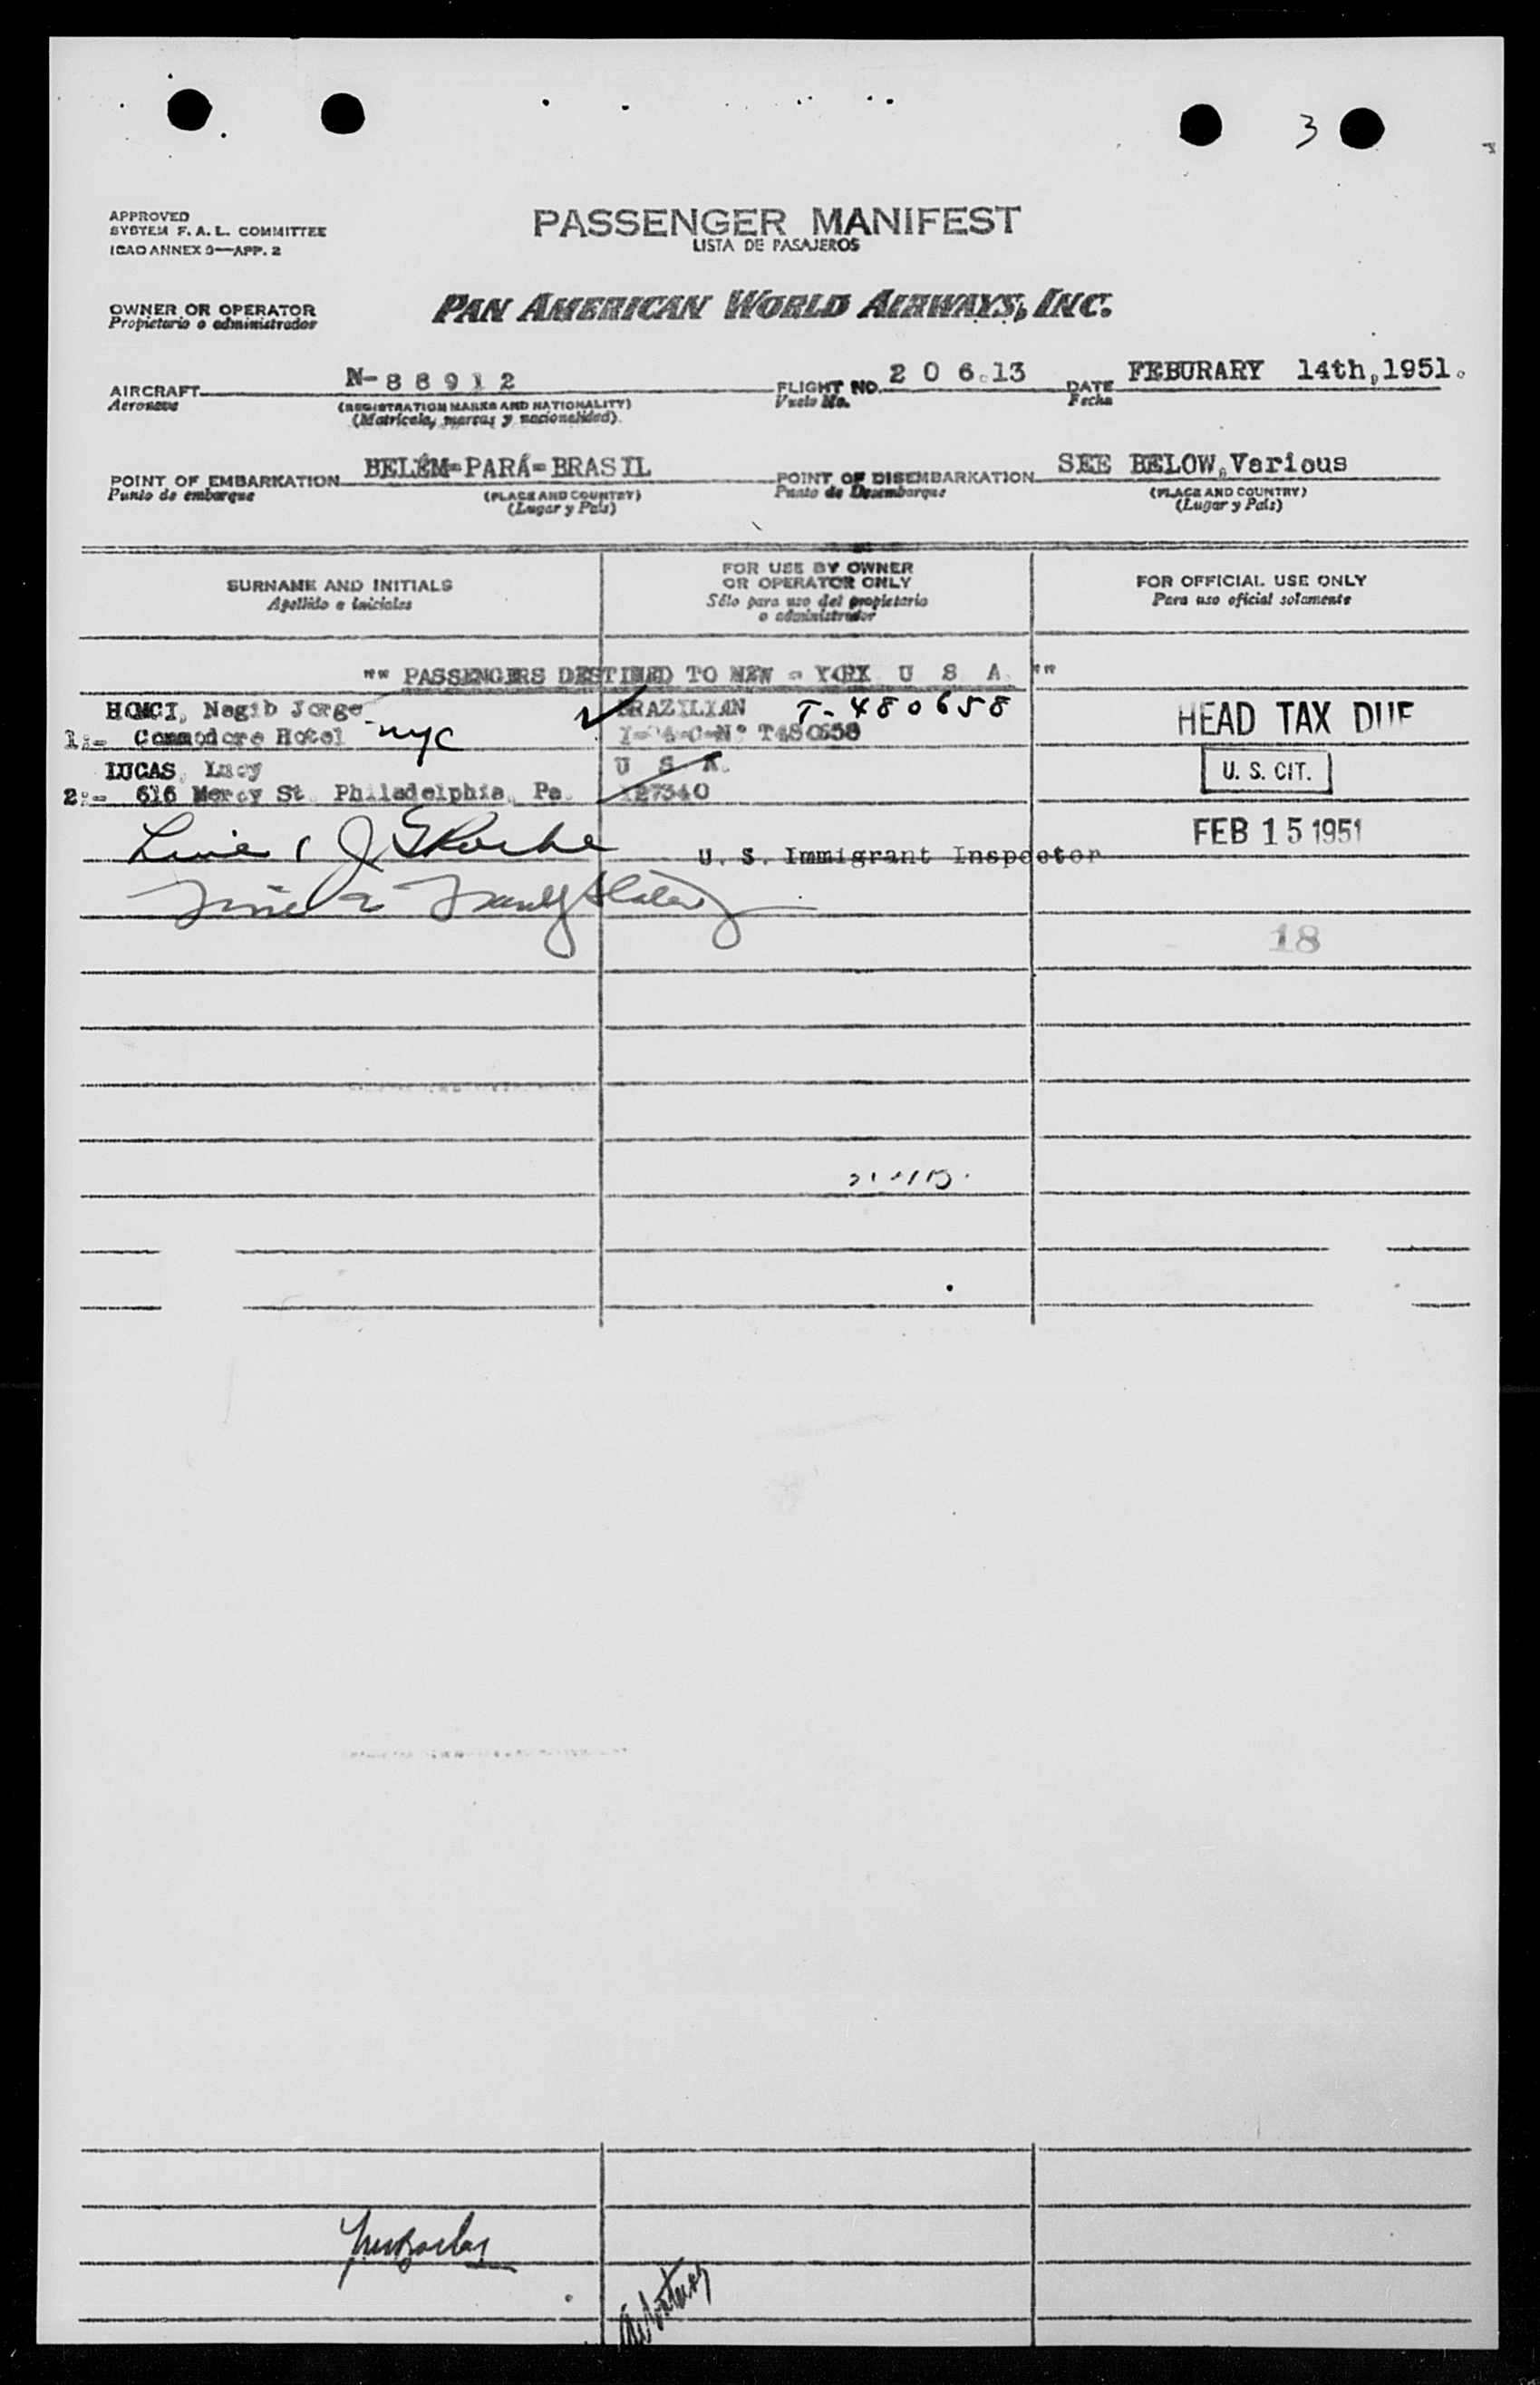 3
APPROVED
SYSTEM F. A. L. COMMITTEE
ICAO ANNEX 9—APP. 2
PASSENGER MANIFEST
LISTA DE PASAJEROS
OWNER OR OPERATOR
Propietario o administrador
PAN AMERICAN WORLD AIRWAYS, INC.
AIRCRAFT N-88912 FLIGHT NO. 2 0 6.13 DATE FEBURARY 14th,1951.
Aeronave (REGISTRATION MARKS AND NATIONALITY) Vuelo No. Fecha
(Matrícula, marcas y nacionalidad)
POINT OF EMBARKATION BELÉM-PARÁ-BRASIL POINT OF DISEMBARKATION SEE BELOW, Various
Punto de embarque (PLACE AND COUNTRY) Punto de Desembarque (PLACE AND COUNTRY)
(Lugar y País) (Lugar y País)
SURNAME AND INITIALS FOR USE BY OWNER OR OPERATOR ONLY FOR OFFICIAL USE ONLY
Apellido e iniciales Sólo para uso del propietario o administrador Para uso oficial solamente
"" PASSENGERS DESTINED TO NEW - YORK U S A. ""
HOMCI, Nagib Jorge BRAZILIAN T-480658 HEAD TAX DUE
1:- Commodore Hotel nyc T480658
LUCAS, Lucy U S A. U. S. CIT.
2:- 616 Mercy St. Philadelphia, Pa. 127340
Line 1 FEB 15 1951
U. S. Immigrant Inspector
Line 2
18